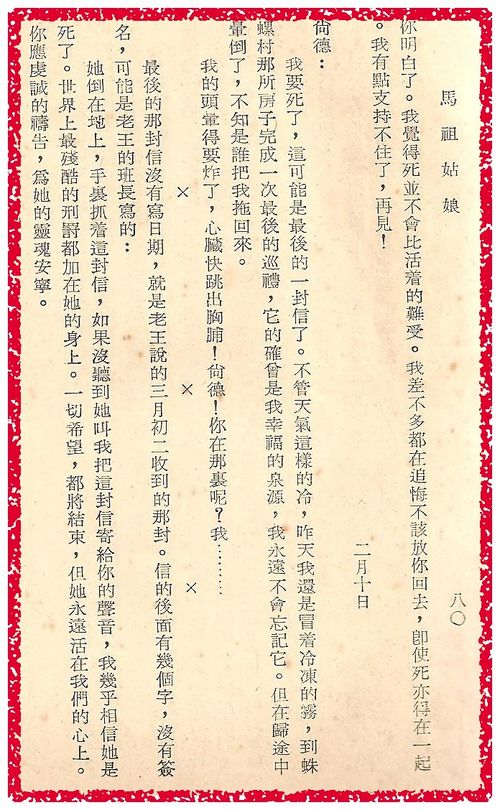 馬祖姑娘
八〇
你明白了。我覺得死並不會比活着的難受。我差不多都在追悔不該放你回去，卽使死亦得在一起
。我有點支持不住了，再見！
二月十日
尙德：
我要死了，這可能是最後的一封信了。不管天氣這樣的冷，昨天我還是冒着冷凍的霧，到蛛
螺村那所房子完成一次最後的巡禮，它的確曾是我幸福的泉源，我永遠不會忘記它。但在歸途中
暈倒了，不知是誰把我拖回來。
我的頭暈得要炸了，心臟快跳出胸脯！尙德！你在那裏呢？我………
×　×　×
最後的那封信沒有寫日期，就是老王說的三月初二收到的那封。信的後面有幾個字，沒有簽
名，可能是老王的班長寫的：
她倒在地上，手裏抓着這封信，如果沒聽到她叫我把這封信寄給你的聲音，我幾乎相信她是
死了。世界上最殘酷的刑罸都加在她的身上。一切希望，都將結束，但她永遠活在我們的心上。
你應虔誠的禱告，爲她的靈魂安寧。